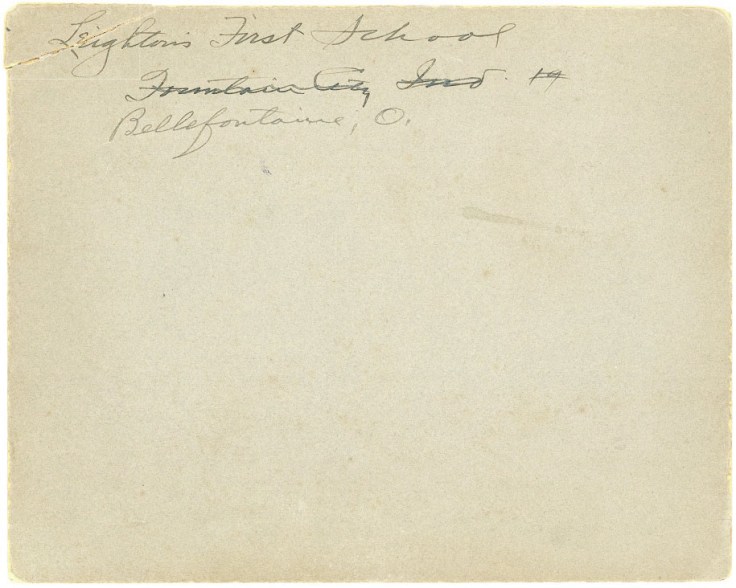 Leighton's First School
Fountain City Ind. 19
Bellefontaine, O.